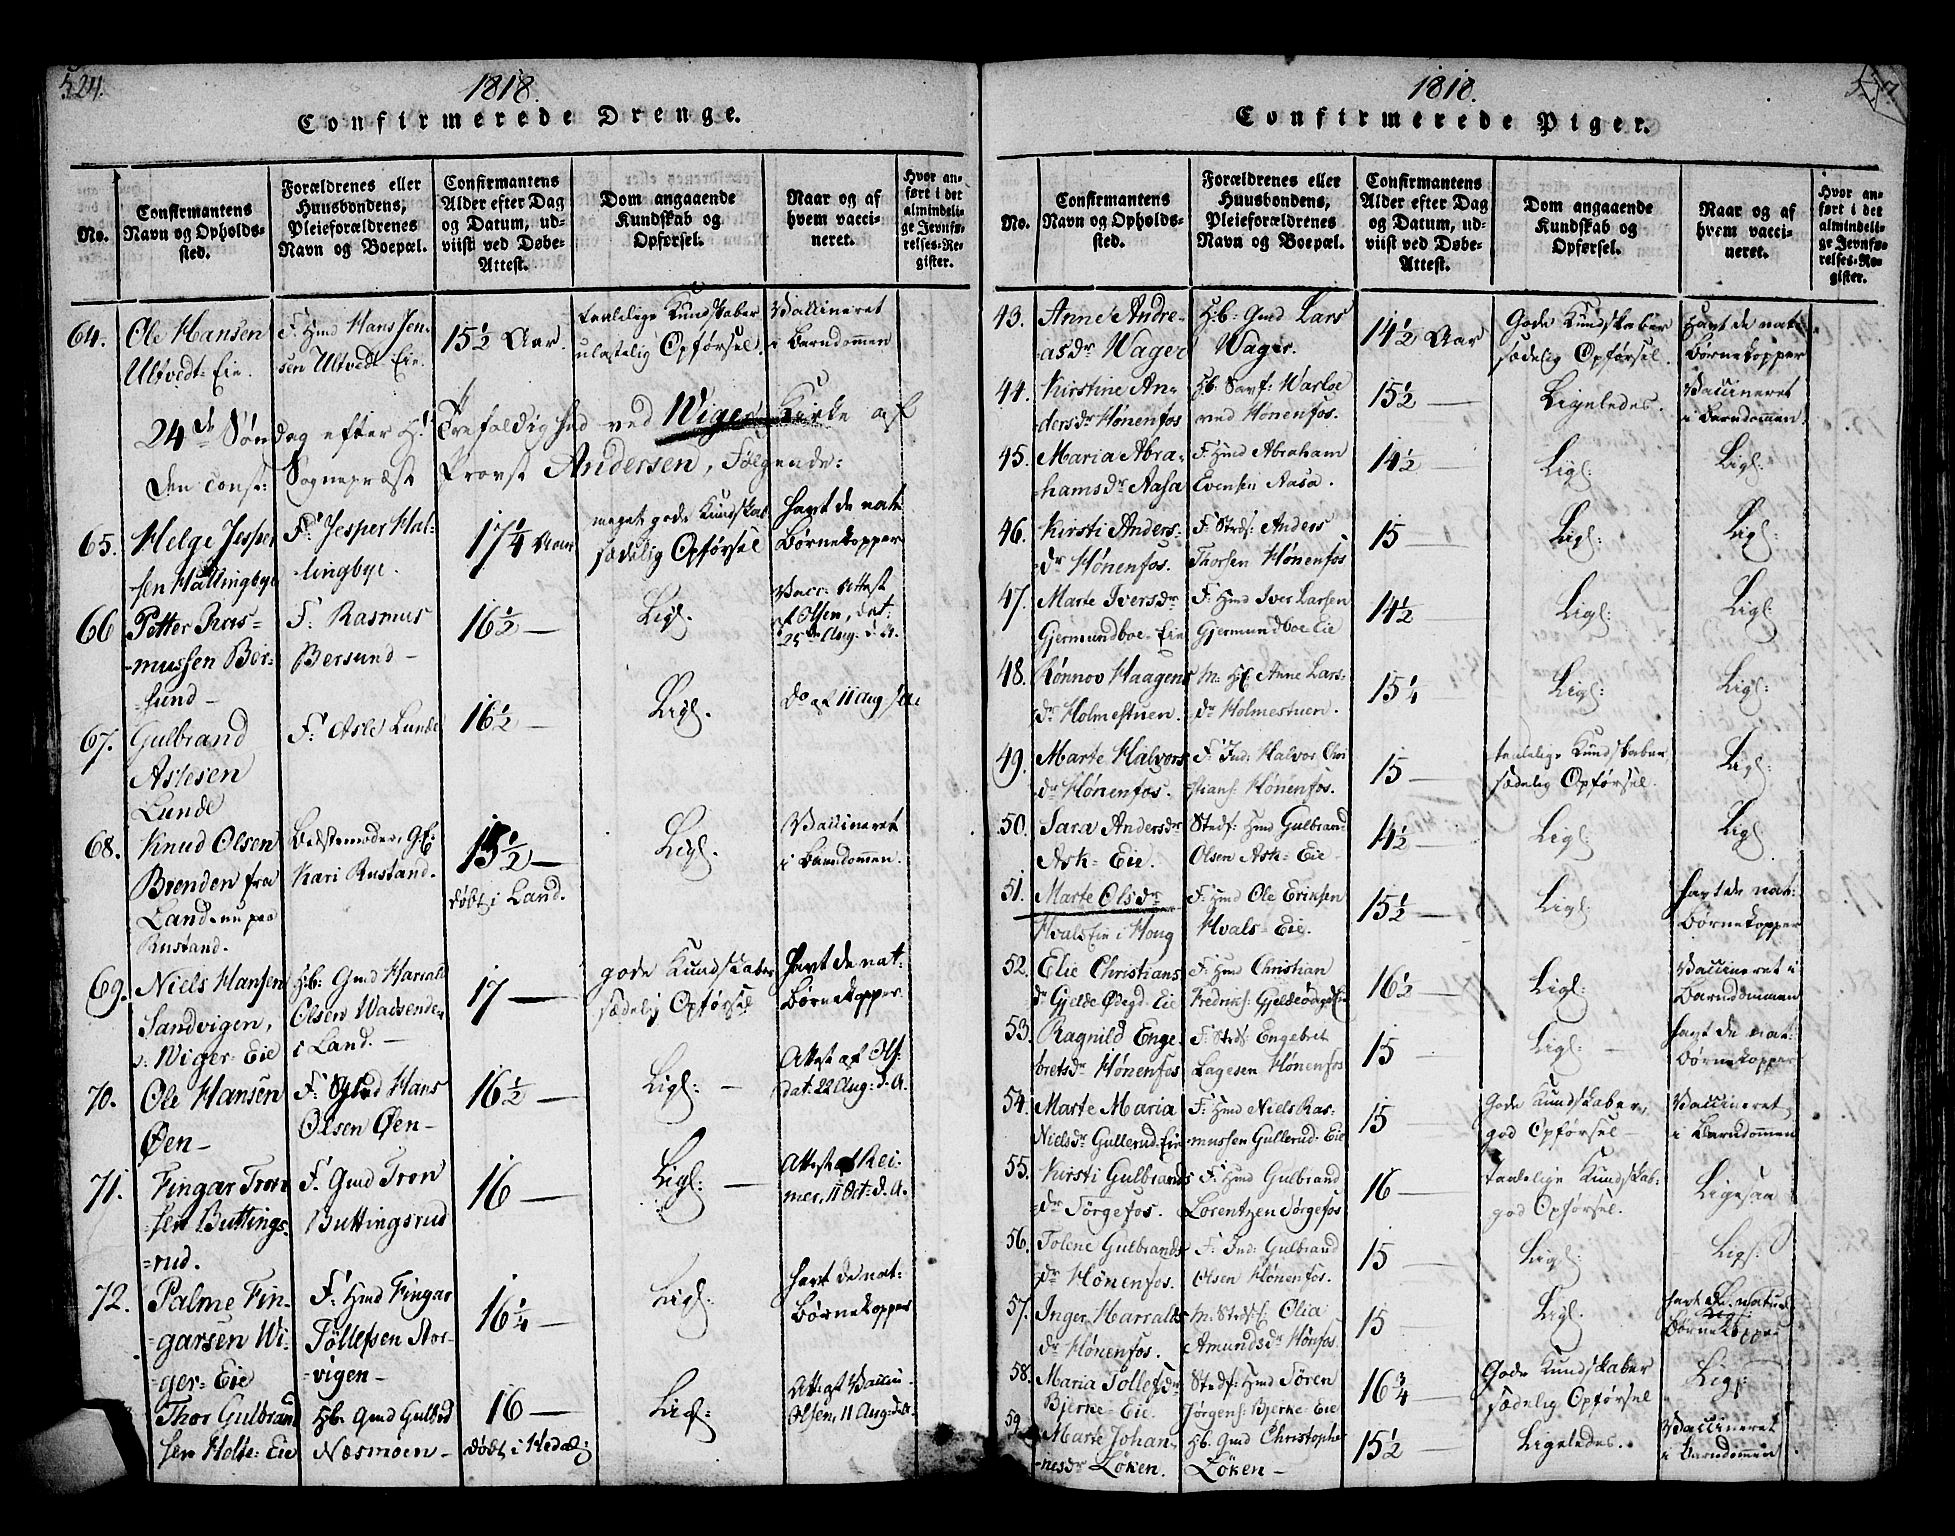 524.
1818.
Confirmerede Drenge.
No.
Confirmantens
Navn og Opholds-
sted.
Forældrenes eller
Huusbondens,
Pleieforældrenes
Navn og Boepæl.
Confirmantens
Alder efter Dag
og Datum, ud-
viist ved Døbe-
Attest.
Dom angaaende
Kundskab og
Opførsel.
Naar og af
hvem vacci-
neret.
Hvor an-
ført i det
almindeli-
ge Jevnfø-
relses-Re-
gister.
64.
Ole Hansen
Ultvedt-Eie.
F: Hmd Hans Jen-
sen Ultvedt-Eie.
15½ Aar.
taalelige Kundskaber
ulastelig Opførsel.
Vaccineret
i Barndommen
24de Søndag efter H: Trefoldighed ved Wiger Kirke af
den const: Sognepræst Provst Andersen, Følgende:
65.
Helge Jesper
sen Hallingbye
F: Jesper Hal-
lingbye.
17¼ Aar
meget gode Kundskab
sædelig Opførsel
havt de nat:
Børnekopper
66
Petter Ras=
-mussen Ber-
=sund-
F: Rasmus
Bersund-
16½ —
Ligl.
Vacc: Attest
af Olsen, dat:
25de Aug: d. A.
67.
Gulbrand
Aslesen
Lunde
F: Asle Lunde
16½ —
Ligl.
do af 11 Aug
68.
Knud Olsen
Brenden fra
Land, nu paa
Rustand.
Bedstemoder,
Kari Rustand.
15½ —
født i Land.
Ligl.
Vaccineret
i Barndommen.
69.
Niels Hansen
Sandvigen,
Wiger-Eie
Hb: Gmd Harrald
Olsen
i Land.-
17 —
gode Kundskaber
sædelig Opførsel
havt de nat:
Børnekopper.
70.
Ole Hansen
Øen-
F: Hans
Olsen Øen-
16½ —
Ligl: —
Attest af Ols.
dat: 22 Aug: d. A.
71.
Fingar Tron
sen Buttings-
=rud.
F: Gmd Tron
Buttingsrud
16 —
Ligl: —
Attest af Rei-
mer, 11 Oct: d. A.
72.
Palme Fin-
=garsen Wi-
ger=Eie
F: Hmd Fingar
Tollefsen Stor-
=vigen-
16¼ —
Ligl.
havt de nat:
Børnekopper
Thor Gulbrand
sen Holte=Eie
Hb: Gmd
Næsmoen-
16 —
født i Hedal:
Ligl:
Attest Vaccin:
Olsen, 11 Aug: d. A.
1818.
Confirmerede Piger.
No.
Confirmantens
Navn og Opholds-
sted.
Forældrenes eller
Huusbondens,
Pleieforældrenes
Navn og Boepæl.
Confirmantens
Alder efter Dag
og Datum, ud-
viist ved Døbe-
Attest.
Dom angaaende
Kundskab og
Opførsel.
Naar og af
hvem vacci-
neret.
Hvor an-
ført i det
almindeli-
ge Jevnfø-
relses-Re-
gister.
43.
Anne Andre-
asdr Wager
Hb: Gmd Lars
Wager.
14½ Aar
Gode Kundskaber
sædelig Opførsel.
Havt de nat:
Børnekopper
44.
Kirstine An=
dersdr Hønenfos
Hb:
ved Hønenfos.
15½ —
Ligeledes.
Vaccineret
i Barndommen
45.
Maria Abra-
hamsdr Aasa
F: Hmd Abraham
Evensen Aasa.
14½ —
Ligl:
Ligl:
46.
Kirsti Anders-
dr Hønenfos.
F: Stedf: Anders
Thorsen Hønenfos
15 —
Ligl:
Ligl:
47.
Marte Iversdr
Gjermundboe-Eie
F: Hmd Iver Larsen
Gjermundboe Eie
14½ —
Ligl:
Ligl:
48.
Rønnov Haagens
dr Holmestuen.
M: Anne Lars-
dr Holmestuen.
15¼ —
Ligl:
Ligl:
49.
Marte Halvors
dr Hønenfos.
F: Ind: Halvor Chri
stians: Hønenfos.
15 —
taalelige Kundskaber
sædelig Opførsel.
Ligl:
50.
Sara Andersdr
Ask=Eie.
Stedf: Hmd Gulbrand
Olsen Ask=Eie-
14½ —
Ligl:
Ligl
51.
Marte Olsdr
Hvals Eie i Houg
F: Hmd Ole Eriksen
Hvals=Eie.
15½ —
Ligl:
havt de nat:
Børnekopper
52.
Elie Christians
dr Gjelde Ødegd-Eie
F: Hmd Christian
Fredrich:
16½ —
Ligl:
Vaccineret i
Barndommen
53.
Ragnild Enge
bretsdr Hønenfos
F: Engebret
Lagesen Hønenfos
15 —
Ligl: —
havt de nat:
Børnekopper
54.
Marte Maria
Nielsdr Gullerud-Eie
F: Hmd Niels Ras-
mussen Gullerud-Eie
15 —
Gode Kundskaber,
god Opførsel-
Vaccineret
i Barndommen
55.
Kirsti Gulbrands
dr Tørgefos.
F: Hmd Gulbrand
Lorentzen Tørgefos
16 —
Taalelige Kundskab:
god Opførsel.
Ligesaa
56.
Tolene Gulbrands
dr Hønenfos.
F: Ind: Gulbrand
Olsen Hønenfos.
15 —
Ligl:
Ligl:
57.
Inger Harralds
dr Hønenfos.
M: Olia
Amundsdr Hønfos
15 —
Ligl.
havt de naturl:
Børnekopper
58.
Maria Tollefsdr
Bjerke-Eie.
Stedf: Hmd Søren
Jørgens: Bjerke-Eie
16¾ —
Gode Kundskaber
sædelig Opførsel
Ligl:
59.
Marte Johan-
nesdr Løken.
Hb: Gmd Christophe
Løken-
15½ —
Ligeledes.
Vaccineret
i Barndommen